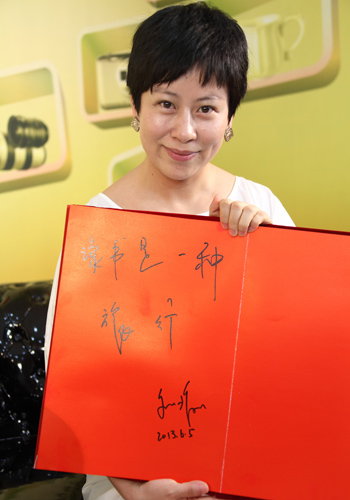 读书是一种
旅行
2013.6.5